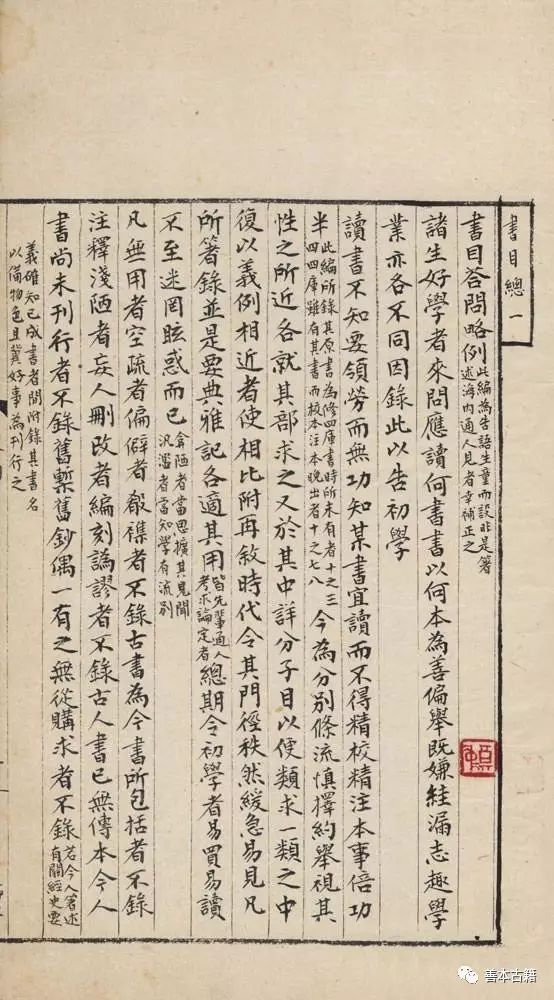 書目總一
書目答問略例此編為告語生童而設非是箸述海內通人見者幸補正之
諸生好學者來問應讀何書書以何本為善偏舉既嫌絓漏志趣學
業亦各不同因錄此以告初學
讀書不知要領勞而無功知某書宜讀而不得精校精注本事倍功
半此編所錄其原書為修四庫書時所未有者十之三四四庫雖有其書而校本注本晚出者十之七八今為分別條流慎擇約舉視其
性之所近各就其部求之又於其中詳分子目以便類求一類之中
復以義例相近者使相比附再敘時代令其門徑秩然緩急易見凡
所箸錄並是要典雅記各適其用皆先輩通人考求論定者總期令初學者易買易讀
不至迷罔眩惑而已弇陋者當思擴其見聞汎濫者當知學有流別
凡無用者空疏者偏僻者殽襍者不錄古書為今書所包括者不錄
注釋淺陋者妄人刪改者編刻譌謬者不錄古人書已無傳本今人
書尚未刊行者不錄舊槧舊鈔偶一有之無從購求者不錄若今人箸述有關經史要
義確知已成書者間附錄其書名以備物色且冀好事為刊行之
善本古籍